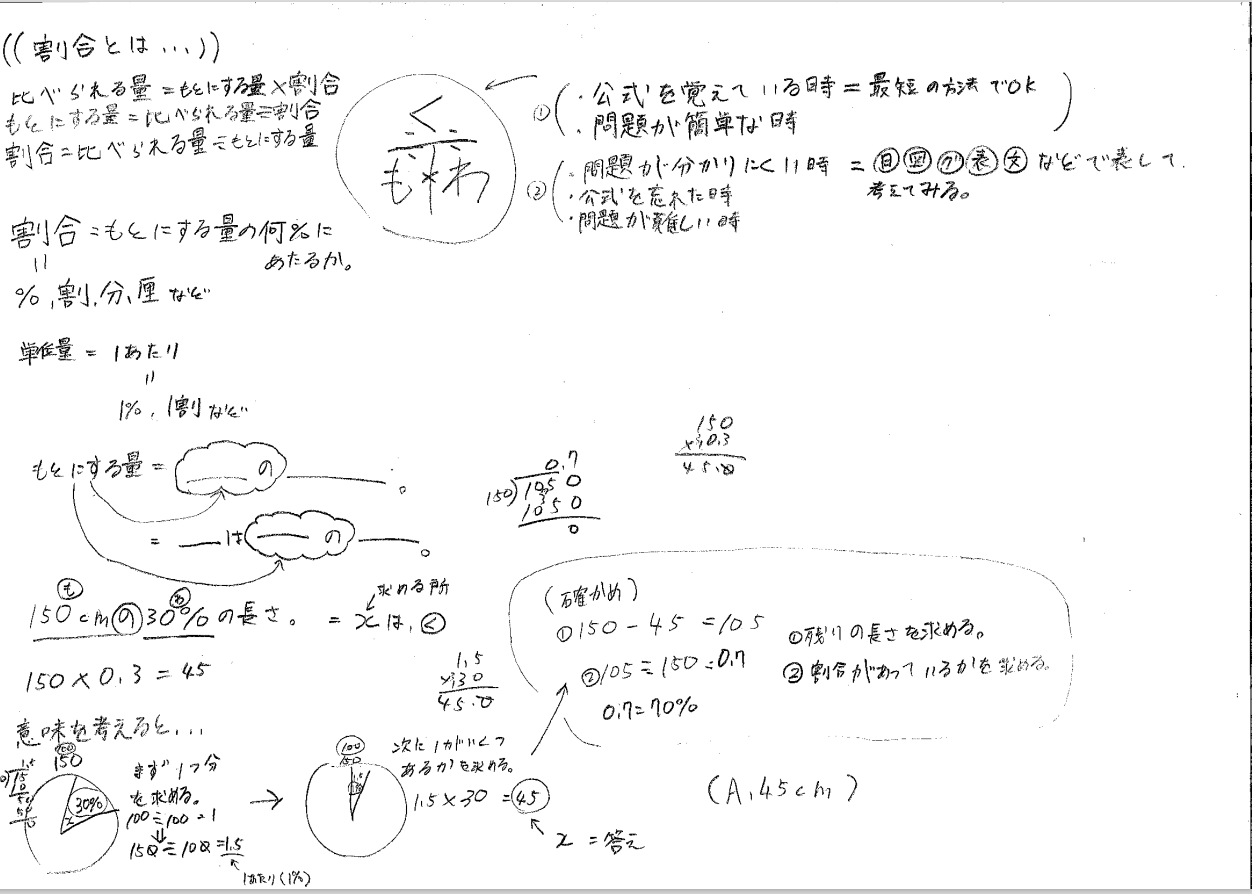 ((割合とは...))
比べられる量=もとにする量×割合
もとにする量=比べられる量÷割合
割合=比べられる量÷もとにする量
く
も×わ
①
・公式を覚えている時=最短の方法でOK
・問題が簡単な時
②
・問題が分かりにくい時=目図か表文などで表して
考えてみる。
・公式を忘れた時
・問題が難しい時
割合=もとにする量の何%に
あたるか。
=
%,割,分,厘など
単位量=1あたり
=
1%,1割など
もとにする量=___の___。
=___は___の___。
0.7
150)1050
1050
0
150
×0.3
45.0
も わ
150cmの30%の長さ。=xは,く
求める所
150×0.3=45
1.5
×30
45.0
(確かめ)
①150-45=105
②105÷150=0.7
0.7=70%
①残りの長さを求める。
②割合があっているかを求める。
意味を考えると...
100
150
30%
x
まず1つ分
を求める。
100÷100=1
150÷100=1.5
1あたり(1%)
→
100
150
次に1がいくつ
あるかを求める。
1.5×30=45
x=答え
(A,45cm)